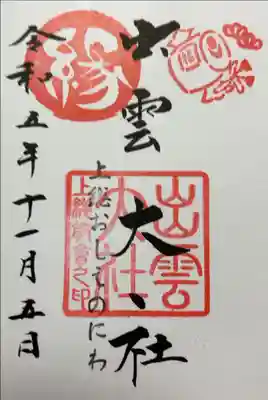 出雲大社
上総おしえのにわ
令和五年十一月五日
縁
出雲
大社
上総教會之印